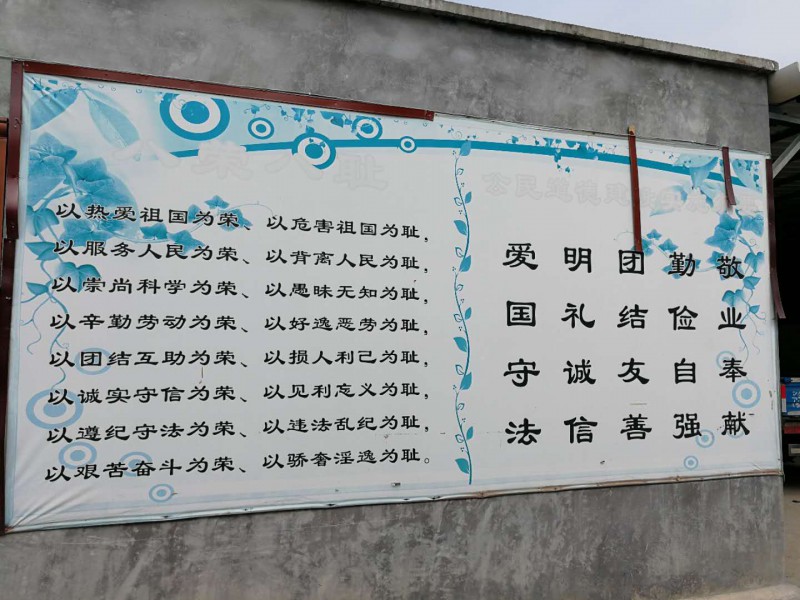 八荣八耻
以热爱祖国为荣、以危害祖国为耻，
以服务人民为荣、以背离人民为耻，
以崇尚科学为荣、以愚昧无知为耻，
以辛勤劳动为荣、以好逸恶劳为耻，
以团结互助为荣、以损人利己为耻，
以诚实守信为荣、以见利忘义为耻，
以遵纪守法为荣、以违法乱纪为耻，
以艰苦奋斗为荣、以骄奢淫逸为耻。
公民道德建设
爱国守法
明礼诚信
团结友善
勤俭自强
敬业奉献